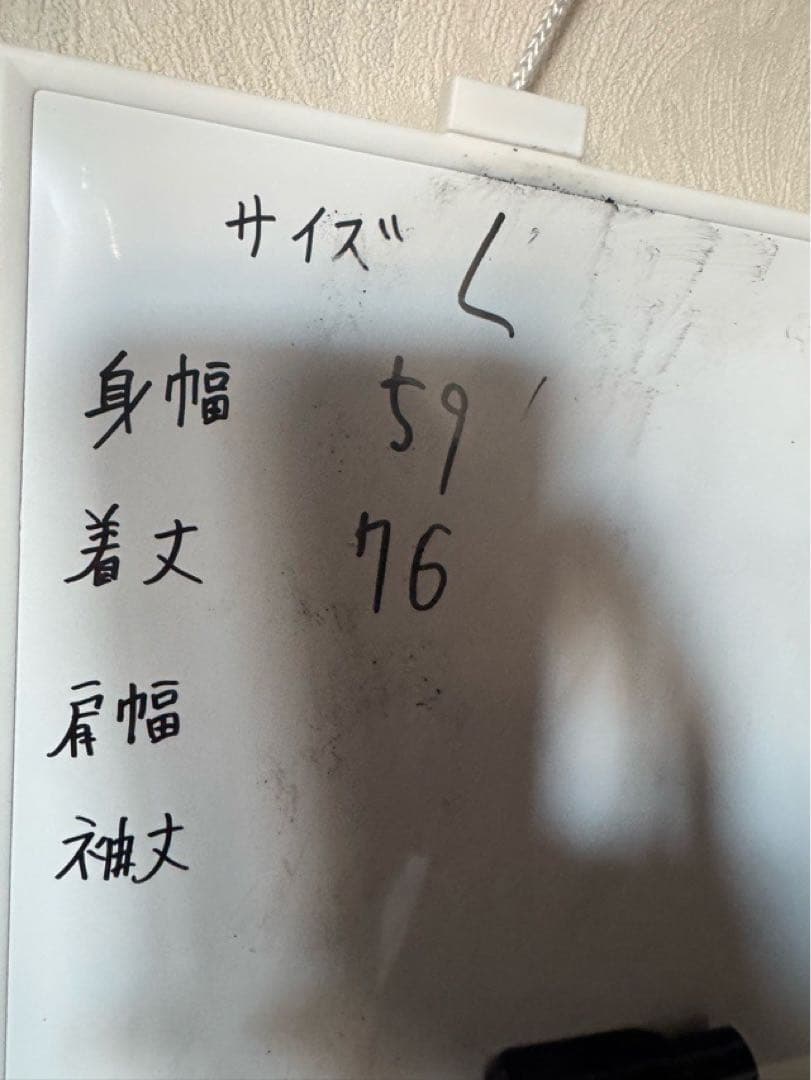 サイズ L
身幅 59
着丈 76
肩幅
袖丈